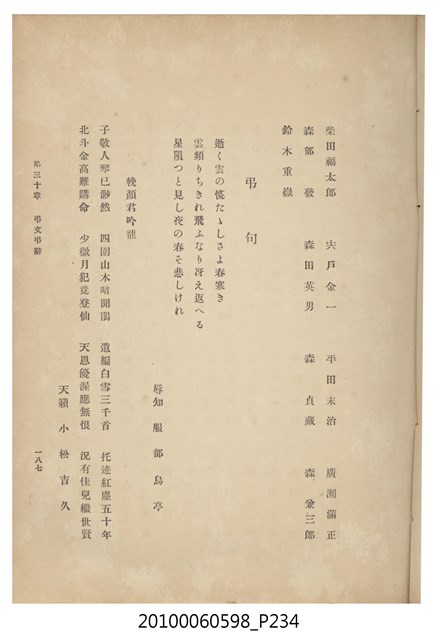 柴田福太郎　宍戸金一　平田末治　廣瀬滿正
森部發　森田英男　森貞藏　森釡三郎
鈴木重嶽
弔句
逝く雲の慌たゝしさよ春寒き
雲頻りちきれ飛ふなり冴え返へる
星隕つと見し夜の春そ悲しけれ
辱知　服部烏亭
輓顏君吟龍
子敬人琴已渺然　四圍山木暗聞鵑　遺編白雪三千首　托迹紅塵五十年
北斗金高難講命　少微月犯竟登仙　天恩優渥應無恨　況有佳兒繼世賢
天籟　小松吉久
第三十章　弔文弔辭
一八七
20100060598_P234